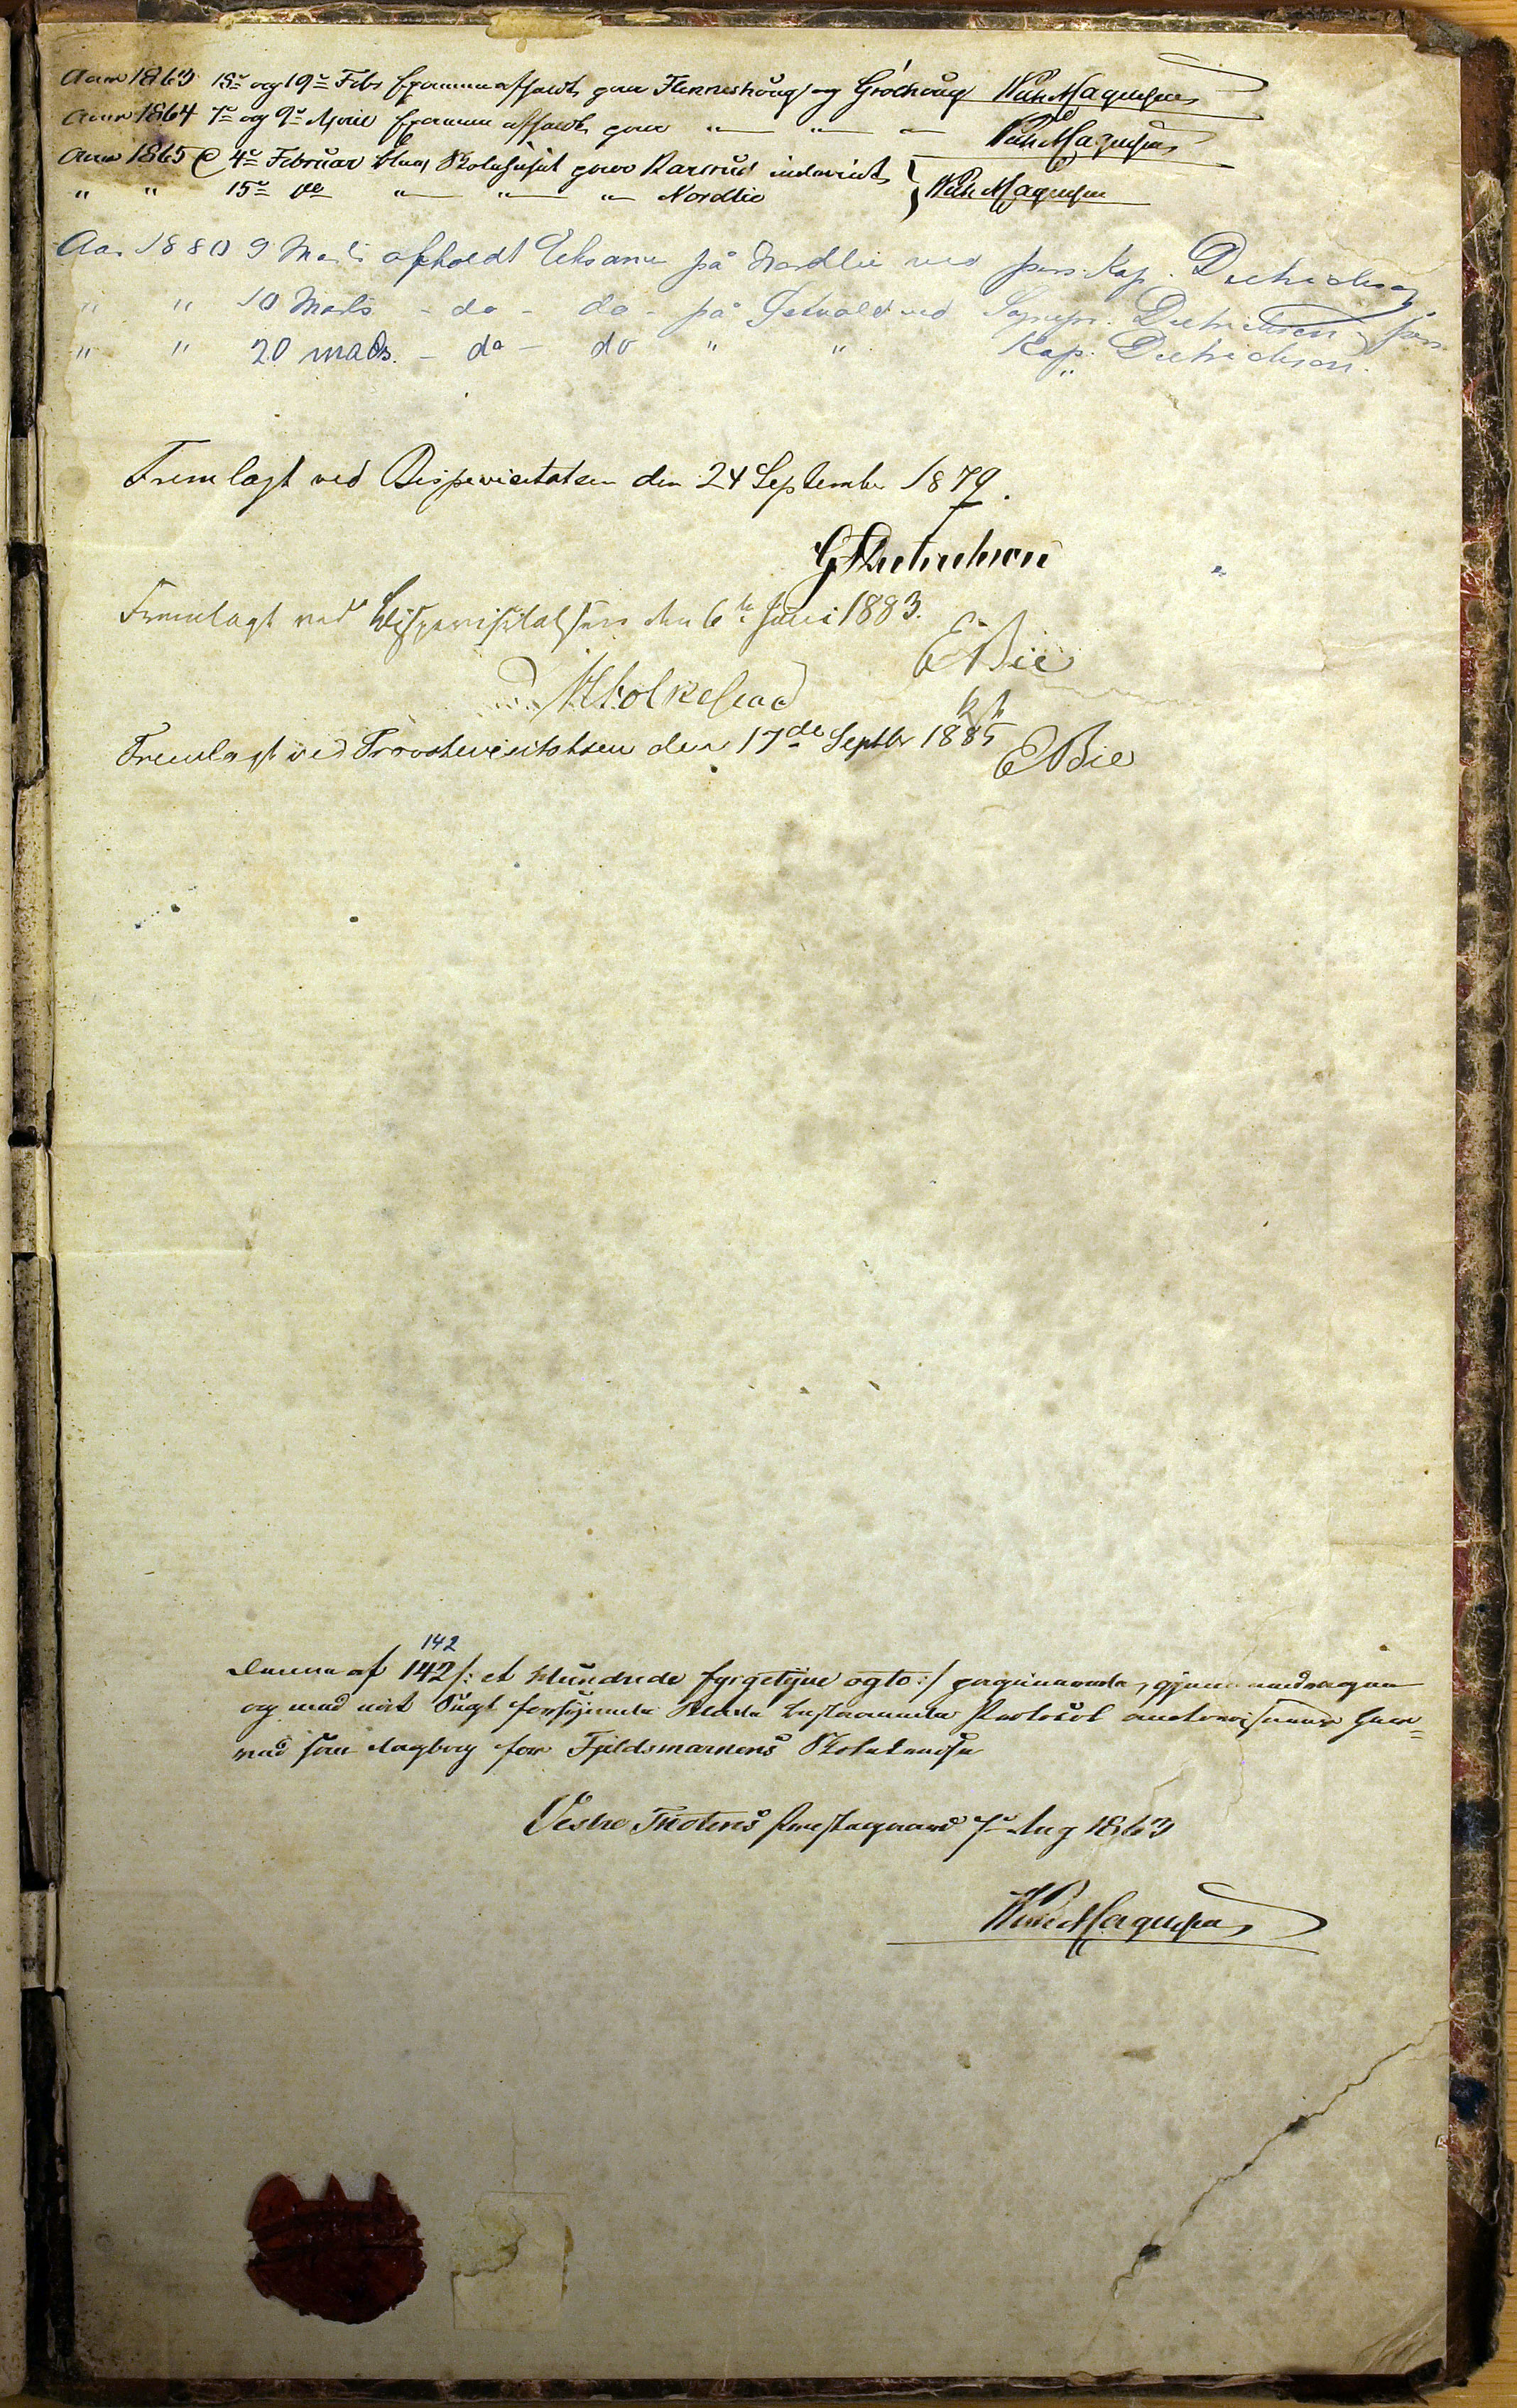 Anno 1863 18de og 19de Febr Examen afholdt paa Flinneshoug og Grøthoug Wilh Magnussen
Anno 1864 7de og 9de April Examen afholdt paa " " " Wilh Magnussen
Anno 1865 4de Februar blev Skolehuset paa Karsrud indviet } Wilh Magnussen
" " 15de do " " " Nordlie
Aar 1880 9 Marts afholdt Eksamen på Nordlie ved pers. Kap. Dietrichson
" " 10 Marts - do - do - på ved Sognepr. Dietrichson & pers.
" " 20 Marts. - do - do " " Kap. Dietrichson.
Fremlagt ved Bispevisitatsen den 24 September 1879.
G F Dietrichson
Fremlagt ved Bispevisitatsen den 6te Juni 1883.
E Bie
Fremlagt ved Provstevisitatsen den 17de Septbr 1885
E Bie
142
Denne af 142 /: et Hundrede fyrgetyve og to :/ paginerede, gjennemdragne
og med mit Segl forsynede Blade bestaaende Protokol autoriseres her-
ved som Dagbog for Fjeldsmarkens Skolekreds
Vestre Thotens Præstegaard 7de Aug 1863
Wilh Magnussen